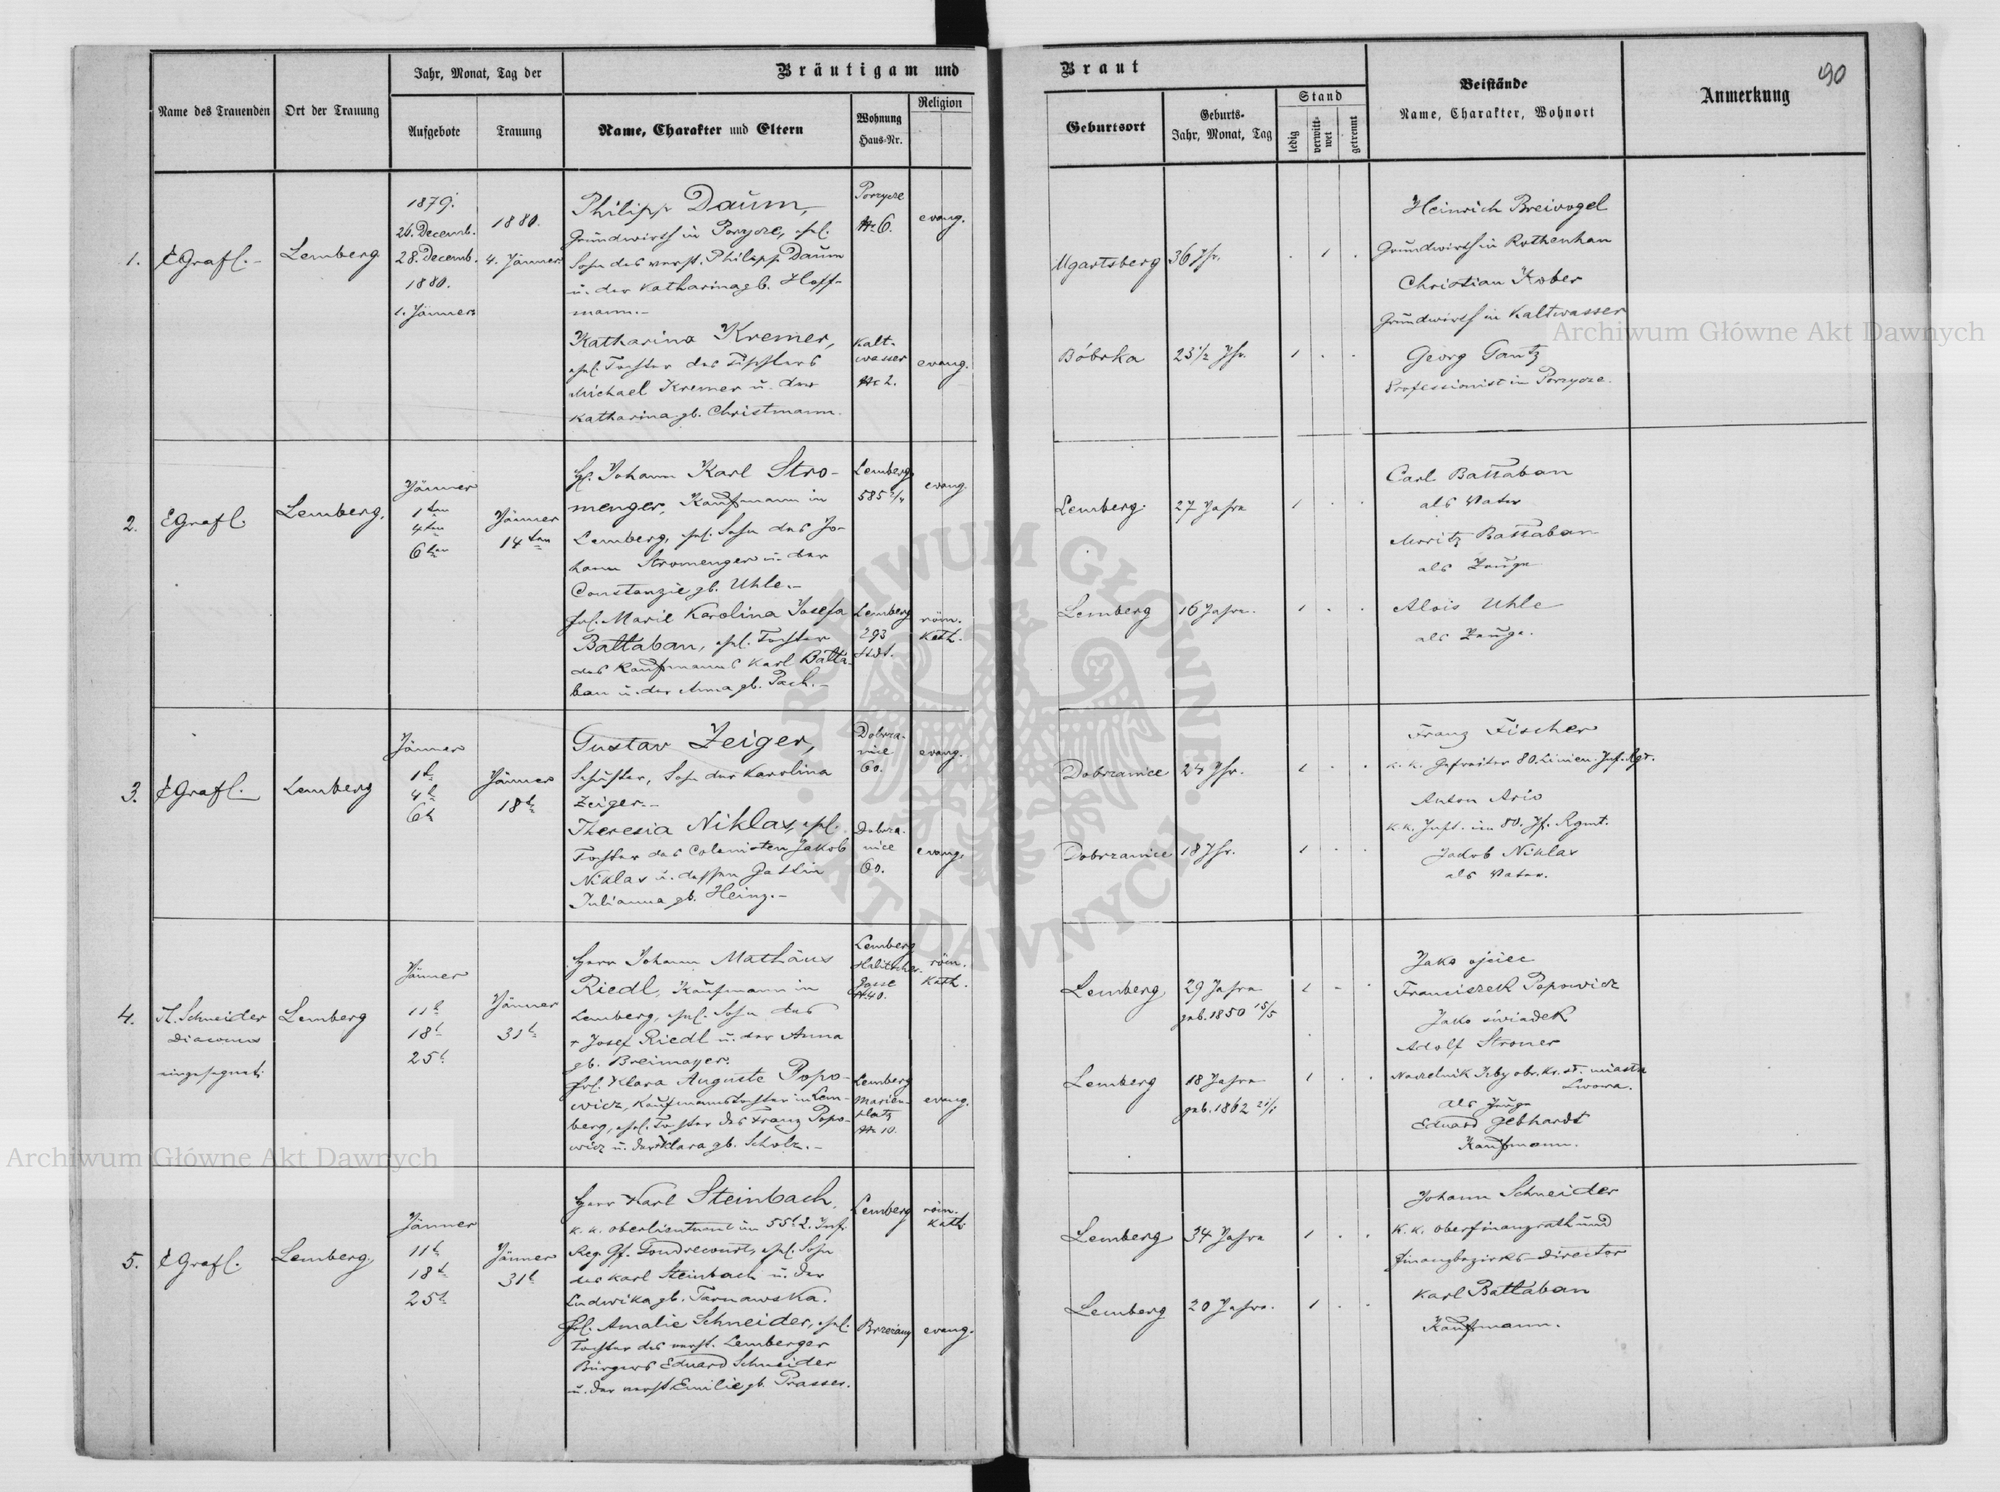 90
Jahr, Monat, Tag der
Bräutigam und
Braut
Name des Trauenden
Ort der Trauung
Aufgebote
Trauung
Name, Charakter und Eltern
Wohnung
Haus-Nr.
Religion
Geburtsort
Geburts-
Jahr, Monat, Tag
Stand
ledig
verwitt-
wet
getrennt
Beistände
Name, Charakter, Wohnort
Anmerkung
1.
Lemberg
1879.
26. Decemb.
28. Decemb.
1880.
1. Jänner
1880.
4. Jänner
Philipp Daum,
Grundwirth in Porzycze, ehel.
Sohn des verst. Philipp Daum
u. der Katharina gb. Hoff-
mann.-
Porzycze
Nr. 6.
evang.
Ugartsberg
36 Jhr.
Katharina Kremer,
ehel. Tochter des Tischlers
Michael Kremer u. der
Katharina gb. Christmann.
Kalt-
wasser
Nr. 2.
evang.
Bóbrka
23 1/2 Jhr.
Heinrich Breivogel
Grundwirth in Rothenhan
Christian Kober
Grundwirth in Kaltwasser
Georg Gantz
Professionist in Porzycze.
2.
Lemberg,
Jänner
1ten
4ten
6ten
Jänner
14ten
H. Johann Karl Stro-
menger, Kaufmann in
Lemberg, ehel. Sohn des Jo-
hann Stromenger u. der
Constanzie, gb. Uhle.-
Lemberg
585 2/4
evang.
Lemberg.
27 Jahre
Frl. Marie Karolina Josefa
Battaban, ehel. Tochter
des Kaufmanns Karl Batta-
ban u. der Anna gb. Pach.-
Lemberg
293
Stdt.
röm.
kath.
Lemberg
16 Jahre.
Carl Battaban
als Vater
Moritz Battaban
als Zeuge
Alois Uhle
als Zeuge.
3.
Lemberg
Jänner
1t
4t
6t
Jänner
18t
Gustav Zeiger,
Schuster, Sohn der Karolina
Zeiger.-
Dobrza-
nice
60.
evang.
Dobrzanice
24 Jhr.
Theresia Niklas, ehel.
Tochter des Colonisten Jakob
Niklas u. dessen Gattin
Julianna gb. Heinz.-
Dobrza-
nice
evang.
Dobrzanice
18 Jhr.
Franz Fischer
k. k. Gefreiter 80. Linien-Inf. Rgt.
Anton
k. k. Inft. im 80. If. Rgmt.
Jakob Niklas
als Vater.
4.
Schneider
Diaconus
eingesegnet.
Lemberg
Jänner
11t
18t
25t
Jänner
31t
Herr Johann Mathäus
Riedl, Kaufmann in
Lemberg, ehel. Sohn des
+ Josef Riedl u. der Anna
gb. Breimayer.
Lemberg
Halitscher-
gasse
Nr. 40.
röm.
kath.
Lemberg
29 Jahre
geb. 1850 15/5
Frl. Klara Auguste Popo-
wicz, Kaufmannstochter in Lem-
berg, ehel. Tochter des Franz Popo-
wicz u. der Klara gb. Scholz.-
Lemberg
Marien-
platz
Nr. 10.
evang.
Lemberg
18 Jahre
geb. 1862
Jako ojciec
Franciszek Popowicz
Jako świadek
Adolf Stroner
Naczelnik Izby obr. kr. st. miasta
Lwowa.
als Zeuge
Eduard Gebhardt
Kaufmann.
5.
Lemberg
Jänner
11t
18t
25t
Jänner
31t
Herr Karl Steinbach,
k. k. Oberlieutnant im 55t L. Inf.
Reg. Gf. Gondrecourt, ehel. Sohn
des Karl Steinbach u. der
Ludwika gb. Tarnawska.
Lemberg
röm.
kath.
Lemberg
34 Jahre
Frl. Amalie Schneider, ehel.
Tochter des verst. Lemberger
Bürgers Eduard Schneider
u. der verst. Emilie gb. Prasser.
Brzeżany
evang.
Lemberg
20 Jahre.
Johann Schneider
k. k. Oberfinanzrath und
Finanzbezirks-Director
Karl Battaban
Kaufmann.
Archiwum Główne Akt Dawnych
Archiwum Główne Akt Dawnych
ARCHIWUM GŁÓWNE AKT DAWNYCH